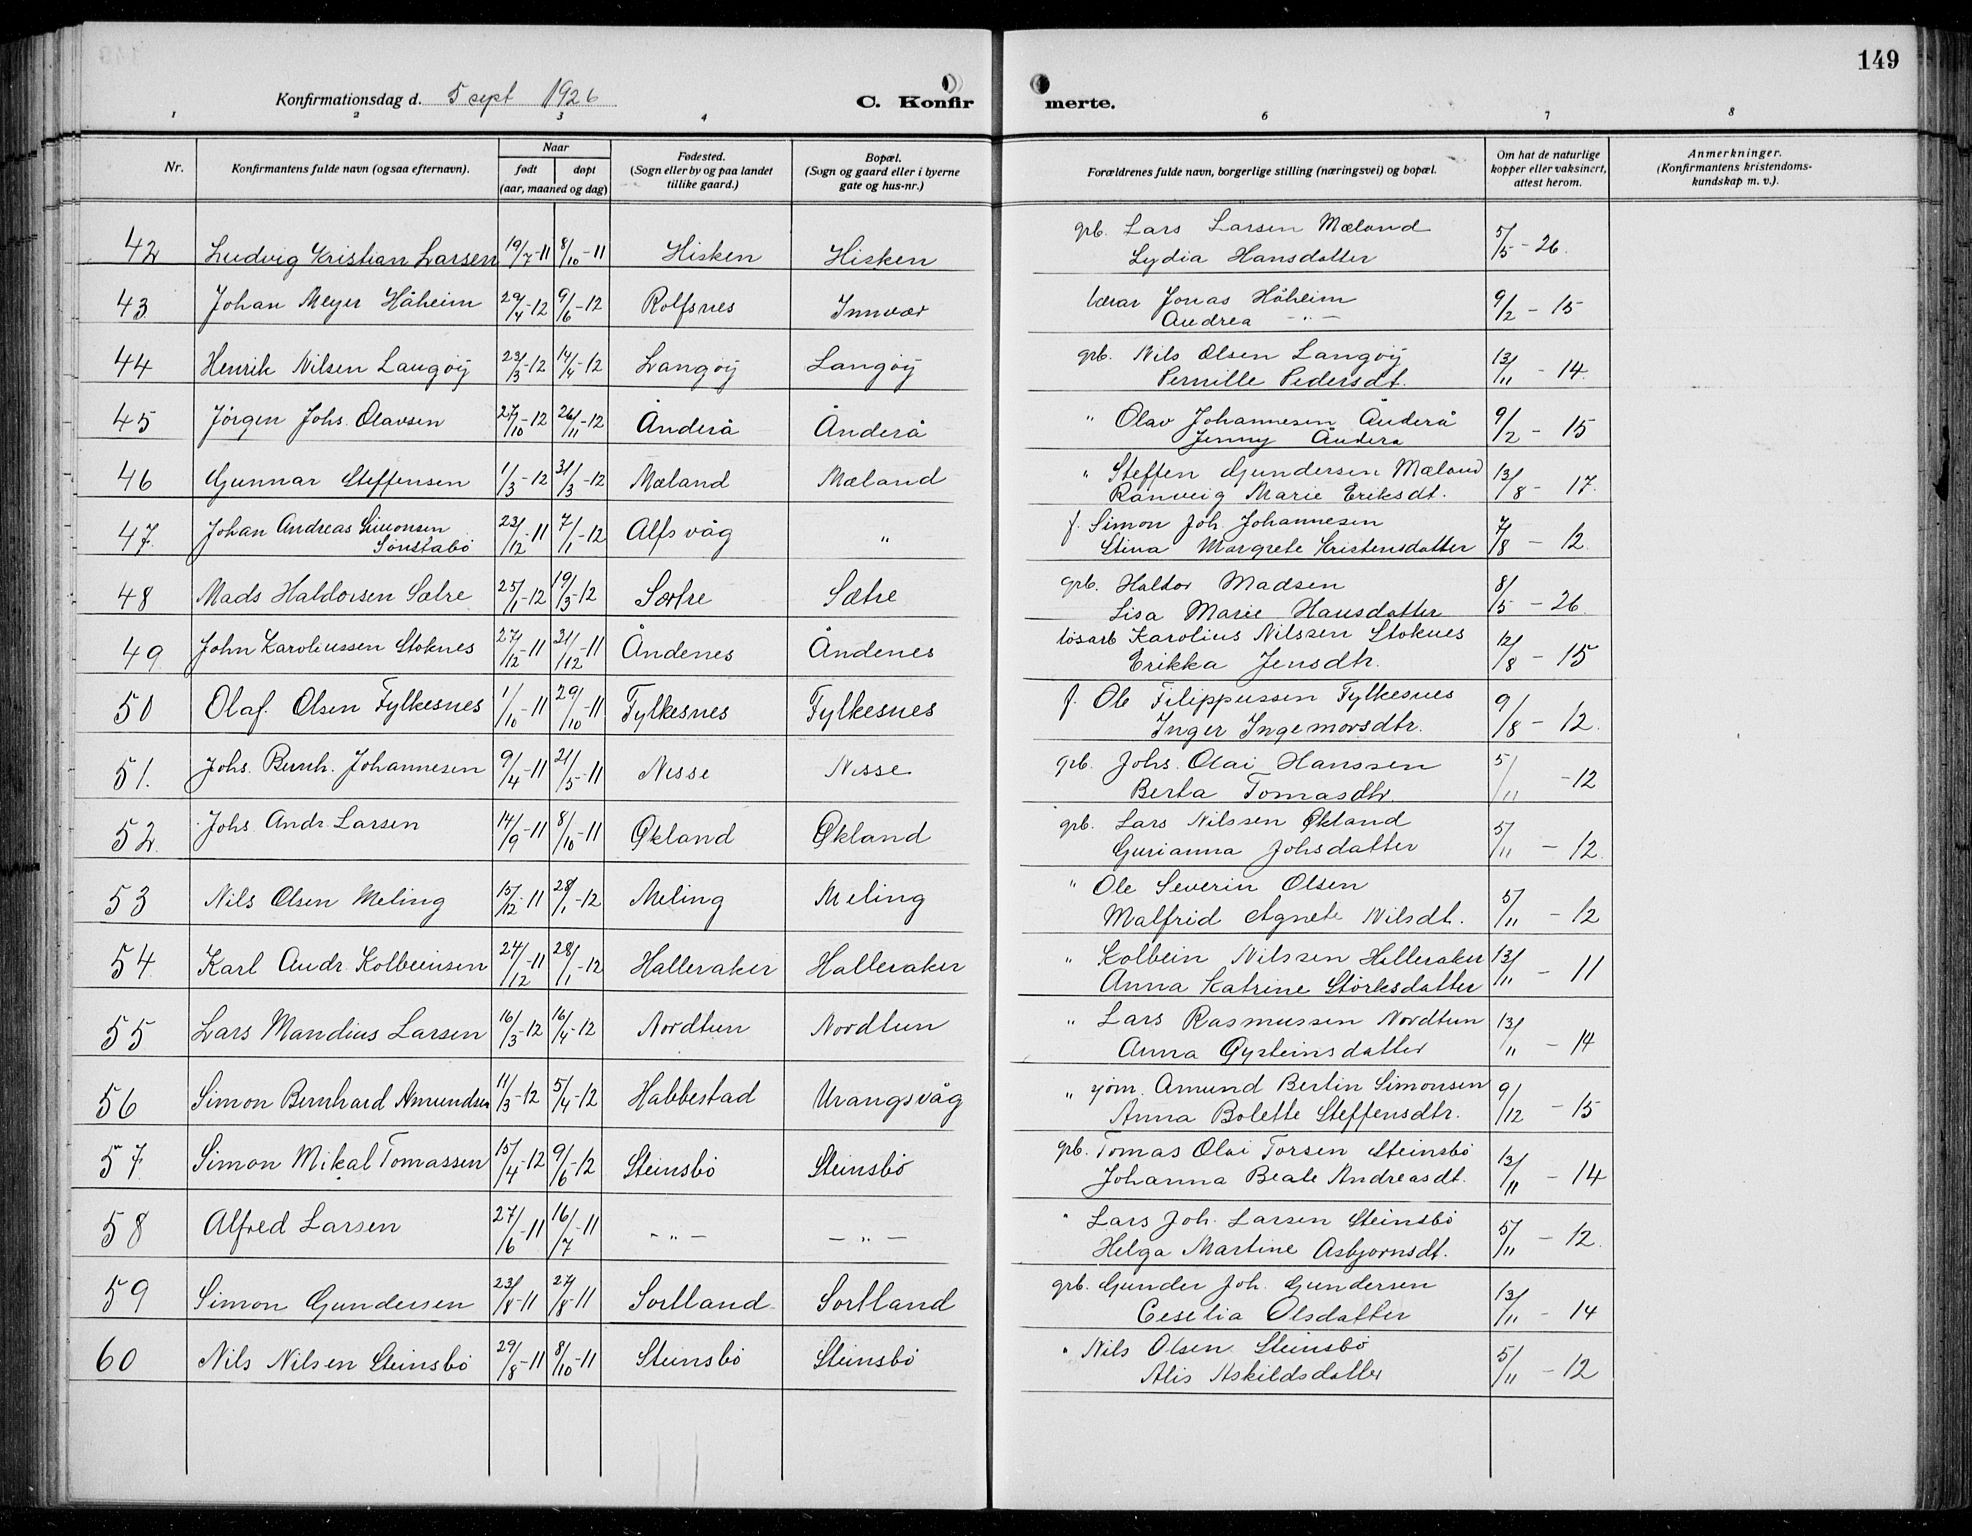 149
Konfirmationsdag d. 5 sept 1926
C. Konfirmerte.
1 2 3 4 6 7 8
Nr.
Konfirmantens fulde navn (ogsaa efternavn).
Naar
født døpt
(aar, maaned og dag)
Fødested.
(Sogn eller by og paa landet
tillike gaard.)
Bopæl.
(Sogn og gaard eller i byerne
gate og hus-nr.)
Forældrenes fulde navn, borgerlige stilling (næringsvei) og bopæl.
Om hat de naturlige
kopper eller vaksinert,
attest herom.
Anmerkninger.
(Konfirmantens kristendoms-
kundskap m. v.).
42 Ludvig Kristian Larsen 19/7-11 8/10-11 Hisken Hisken grb. Lars Larsen Mæland 5/5-26.
Lydia Hansdatter
43 Johan Meyer Håheim 29/4-12 9/6-12 Rolfsnes Innvær lærar Jonas Håheim 9/2-15
Andrea -"-
44 Henrik Nilsen Langøy 23/3-12 14/4-12 Langøy Langøy grb. Nils Olsen Langøy 13/11-14.
Pernille Pedersdt.
45 Jørgen Johs. Olavsen 27/10-12 26/11-12 Ånderå Ånderå " Olav Johannesen Ånderå 9/2-15
Jenny Åndera
46 Gunnar Steffensen 1/3-12 31/3-12 Mæland Mæland " Steffen Gundersen Mæland 13/8-17.
Ranveig Marie Eriksdt.
47. Johan Andreas Simonsen
Sønstabø 23/12-11 7/1-12 Alfsvåg " f. Simon Joh. Johannesen 7/8-12.
Stina Margrete Kristensdatter
48 Mads Haldorsen Sætre 25/1-12 19/3-12 Sætre Sætre grb. Haldor Madsen 8/5-26.
Lisa Marie Hansdatter
49 John Karoliussen Stoknes 27/12-11 31/12-11 Åndenes Åndenes løsarb Karolius Nilssen Stoknes 12/8-15
Erikka Jensdtr.
50 Olaf. Olsen Fylkesnes 1/10-11 29/10-11 Fylkesnes Fylkesnes f. Ole Filippussen Fylkesnes 9/8-12.
Inger Ingemorsdtr.
51. Johs. Bernh. Johannesen 9/4-11 21/5-11 Nesse Nesse grb. Johs. Olai Hanssen 5/11-12
Berta Tomasdtr.
52. Johs. Andr Larsen 14/9-11 8/10-11 Økland Økland grb. Lars Nilssen Økland 5/11-12.
Gurianna Johsdatter
53 Nils Olsen Meling 15/12-11 28/1-12 Meling Meling " Ole Severin Olsen 5/11-12
Malfrid Agnete Nilsdt.
54. Karl Andr. Kolbeinsen 24/12-11 28/1-12 Halleraker Halleraker " Kolbein Nilssen Halleraker 13/11-11
Anna Katrine Størksdatter
55 Lars Mandius Larsen 16/3-12 16/4-12 Nordtun Nordtun " Lars Rasmussen Nordtun 13/11-14
Anna Øysteinsdatter
56 Simon Bernhard Amundsen 11/3-12 5/4-12 Habbestad Urangsvåg " Amund Bertin Simonsen 9/12-15
Anna Bolette Steffensdtr.
57. Simon Mikal Tomassen 15/4-12 9/6-12 Steinsbø Steinsbø grb. Tomas Olai Torsen Steinsbø 13/11-14
Johanna Beate Andreasdt.
58 Alfred Larsen 27/6-11 16/7-11 -"- -"- " Lars Joh. Larsen Steinsbø 5/11-12.
Helga Martine Asbjørnsdt.
59 Simon Gundersen 23/8-11 27/8-11 Sortland Sortland grb. Gunder Joh. Gundersen 13/11-14
Ceselia Olsdatter
60 Nils Nilsen Steinsbø 29/8-11 8/10-11 Steinsbø Steinsbø " Nils Olsen Steinsbø 5/11-12
Alis Askildsdatter